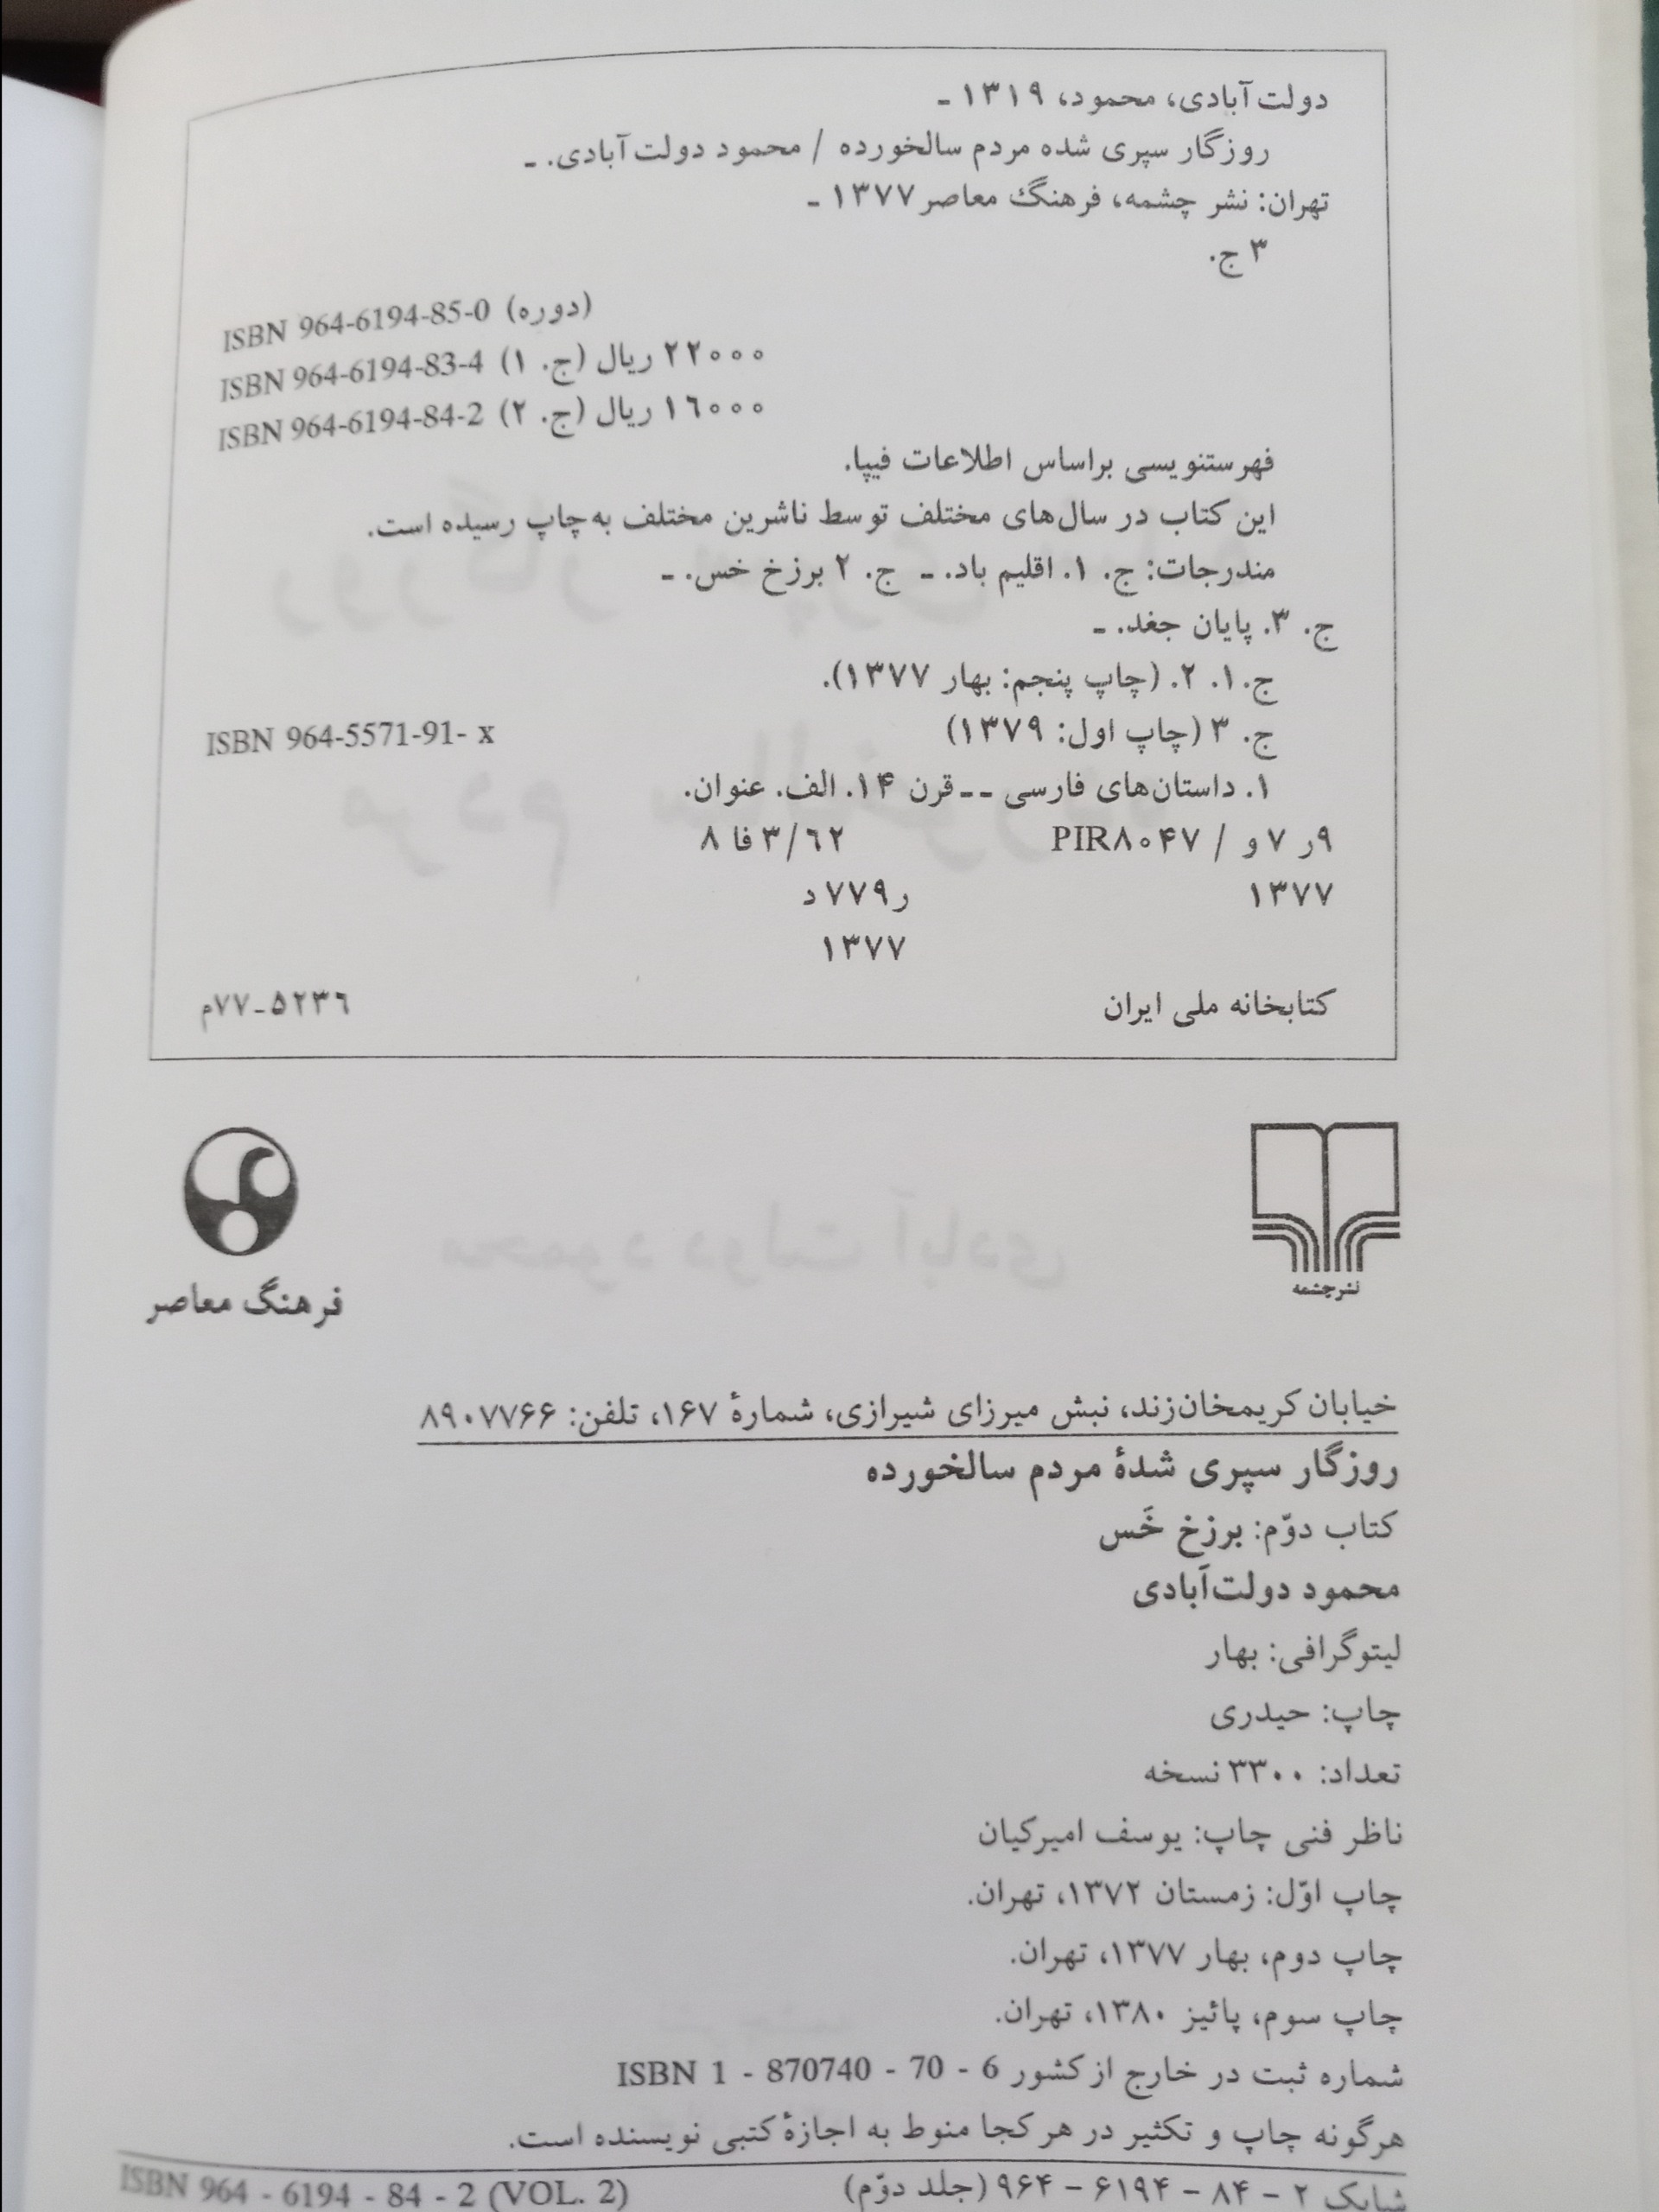 دولت‌آبادی، محمود، ۱۳۱۹ -
روزگار سپری شده مردم سالخورده / محمود دولت‌آبادی. -
تهران: نشر چشمه، فرهنگ معاصر ۱۳۷۷ -
۳ ج.
ISBN 964-6194-85-0 (دوره)
ISBN 964-6194-83-4 (ج. ۱) ۲۲۰۰۰ ریال
ISBN 964-6194-84-2 (ج. ۲) ۱۶۰۰۰ ریال
فهرستنویسی براساس اطلاعات فیپا.
این کتاب در سال‌های مختلف توسط ناشرین مختلف به‌چاپ رسیده است.
مندرجات: ج. ۱. اقلیم باد. - ج. ۲ برزخ خس. -
ج. ۳. پایان جغد. -
ج.۱. ۲. (چاپ پنجم: بهار ۱۳۷۷).
ج. ۳ (چاپ اول: ۱۳۷۹) ISBN 964-5571-91- x
۱. داستان‌های فارسی -- قرن ۱۴. الف. عنوان.
۹ر ۷و / PIR۸۰۴۷ ۳/۶۲ فا ۸
۱۳۷۷ ر۷۷۹د
۱۳۷۷
کتابخانه ملی ایران ۵۲۳۶-۷۷م
نشرچشمه
فرهنگ معاصر
خیابان کریمخان‌زند، نبش میرزای شیرازی، شمارۀ ۱۶۷، تلفن: ۸۹۰۷۷۶۶
روزگار سپری شدۀ مردم سالخورده
کتاب دوّم: برزخ خَس
محمود دولت‌آبادی
لیتوگرافی: بهار
چاپ: حیدری
تعداد: ۳۳۰۰ نسخه
ناظر فنی چاپ: یوسف امیرکیان
چاپ اوّل: زمستان ۱۳۷۲، تهران.
چاپ دوم، بهار ۱۳۷۷، تهران.
چاپ سوم، پائیز ۱۳۸۰، تهران.
شماره ثبت در خارج از کشور ISBN 1 - 870740 - 70 - 6
هرگونه چاپ و تکثیر در هرکجا منوط به اجازۀ کتبی نویسنده است.
شابک ۲ - ۸۴ - ۶۱۹۴ - ۹۶۴ (جلد دوّم) ISBN 964 - 6194 - 84 - 2 (VOL. 2)